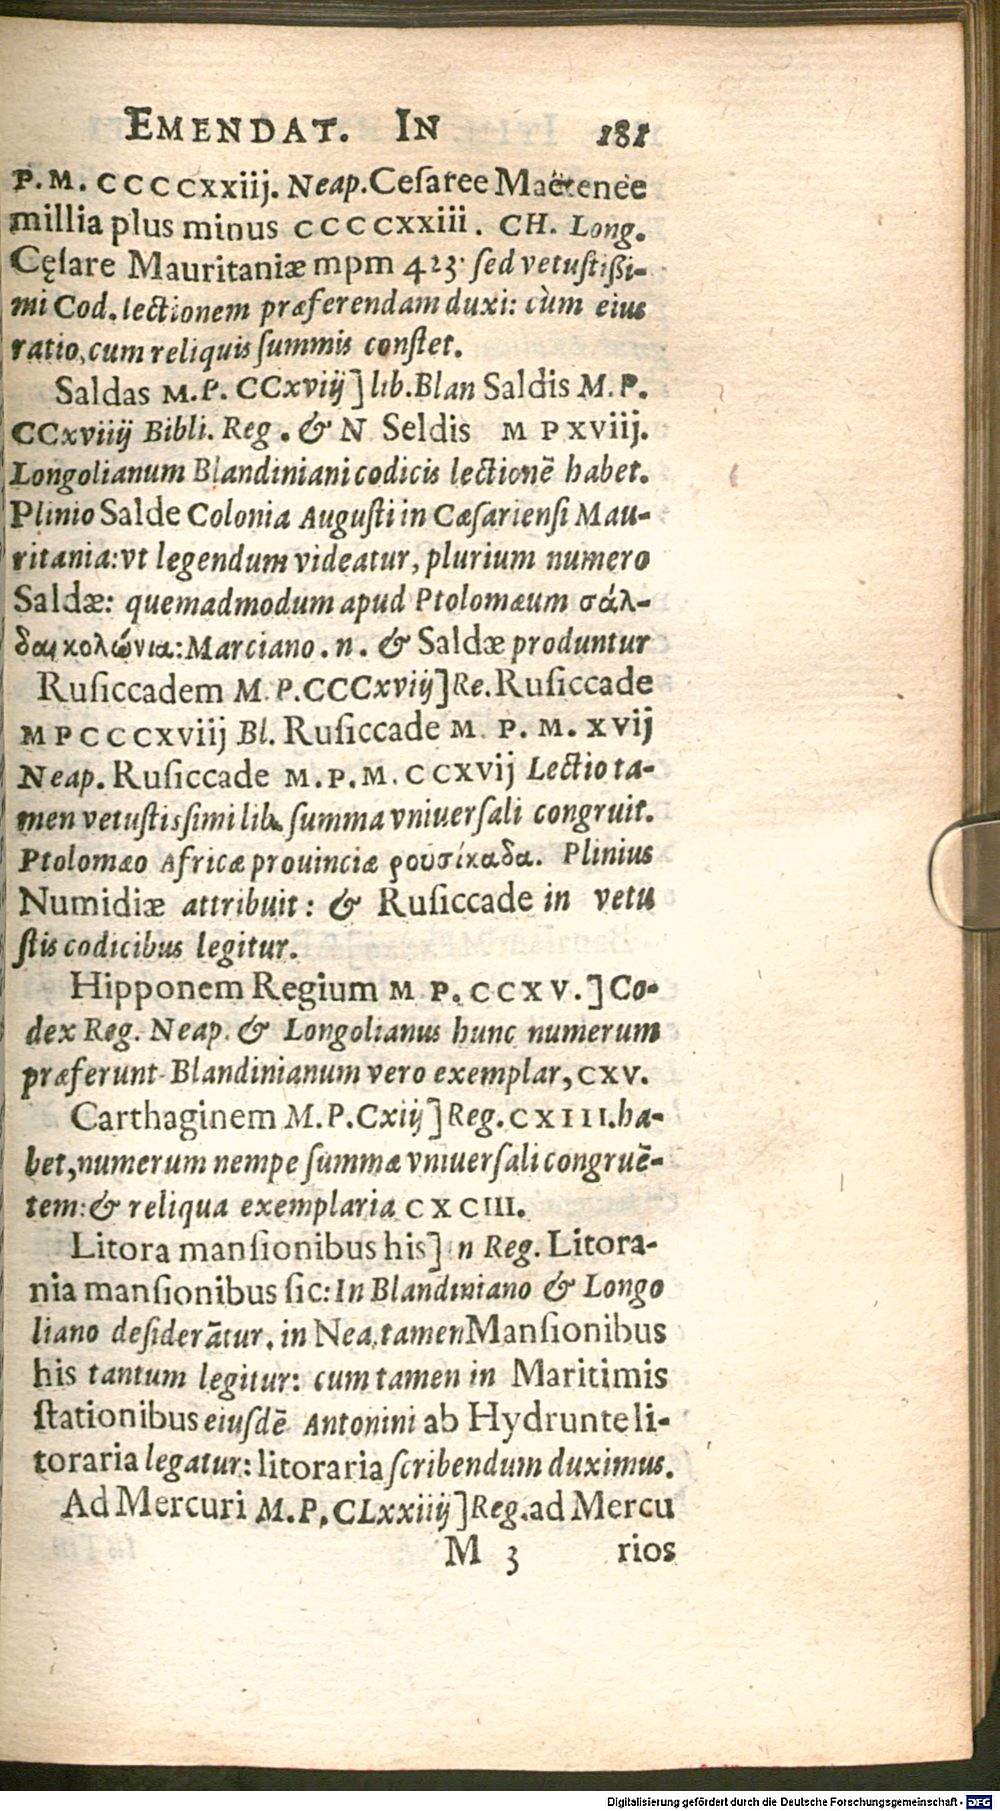 EMENDAT. IN 181
P. M. CCCCxxiij. Neap. Cesaree Maëtenee
millia plus minus CCCCxxiii. CH. Long.
Cęsare Mauritaniæ mpm 423· sed vetustißi-
mi Cod. lectionem præferendam duxi: cùm eius
ratio, cum reliquis summis constet.
Saldas M. P. CCxviij] lib. Blan Saldis M. P.
CCxviiij Bibli. Reg. & N Seldis M P xviij.
Longolianum Blandiniani codicis lectionē habet.
Plinio Salde Colonia Augusti in Cæsariensi Mau-
ritania: vt legendum videatur, plurium numero
Saldæ: quemadmodum apud Ptolomæum σάλ-
δαι κολώνια: Marciano. n. & Saldæ produntur
Rusiccadem M. P. CCCxviij] Re. Rusiccade
M P CCCxviij Bl. Rusiccade M. P. M. XVIJ
Neap. Rusiccade M. P. M. CCXVIJ Lectio ta-
men vetustissimi lib. summa vniuersali congruit.
Ptolomæo Africæ prouinciæ ρουσίκαδα. Plinius
Numidiæ attribuit: & Rusiccade in vetu
stis codicibus legitur.
Hipponem Regium M P. CCXV.] Co-
dex Reg. Neap. & Longolianus hunc numerum
præferunt Blandinianum vero exemplar, CXV.
Carthaginem M. P. Cxiij] Reg. CXIII. ha-
bet, numerum nempe summæ vniuersali congruē-
tem: & reliqua exemplaria CXCIII.
Litora mansionibus his] in Reg. Litora-
nia mansionibus sic: In Blandiniano & Longo
liano desiderātur. in Nea. tamen Mansionibus
his tantum legitur: cum tamen in Maritimis
stationibus eiusdē Antonini ab Hydrunte li-
toraria legatur: litoraria scribendum duximus.
Ad Mercuri M. P. CLxxiiij] Reg. ad Mercu
M 3 rios
Digitalisierung gefördert durch die Deutsche Forschungsgemeinschaft - DFG